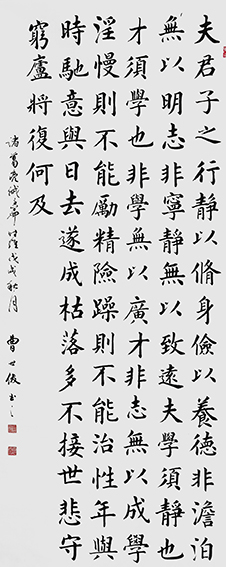 夫君子之行靜以脩身儉以養德非澹泊
無以明志非寧靜無以致遠夫學須靜也
才須學也非學無以廣才非志無以成學
淫慢則不能勵精險躁則不能治性年與
時馳意與日去遂成枯落多不接世悲守
窮廬將復何及
諸葛亮誡子篇 戊戌秋月 曹